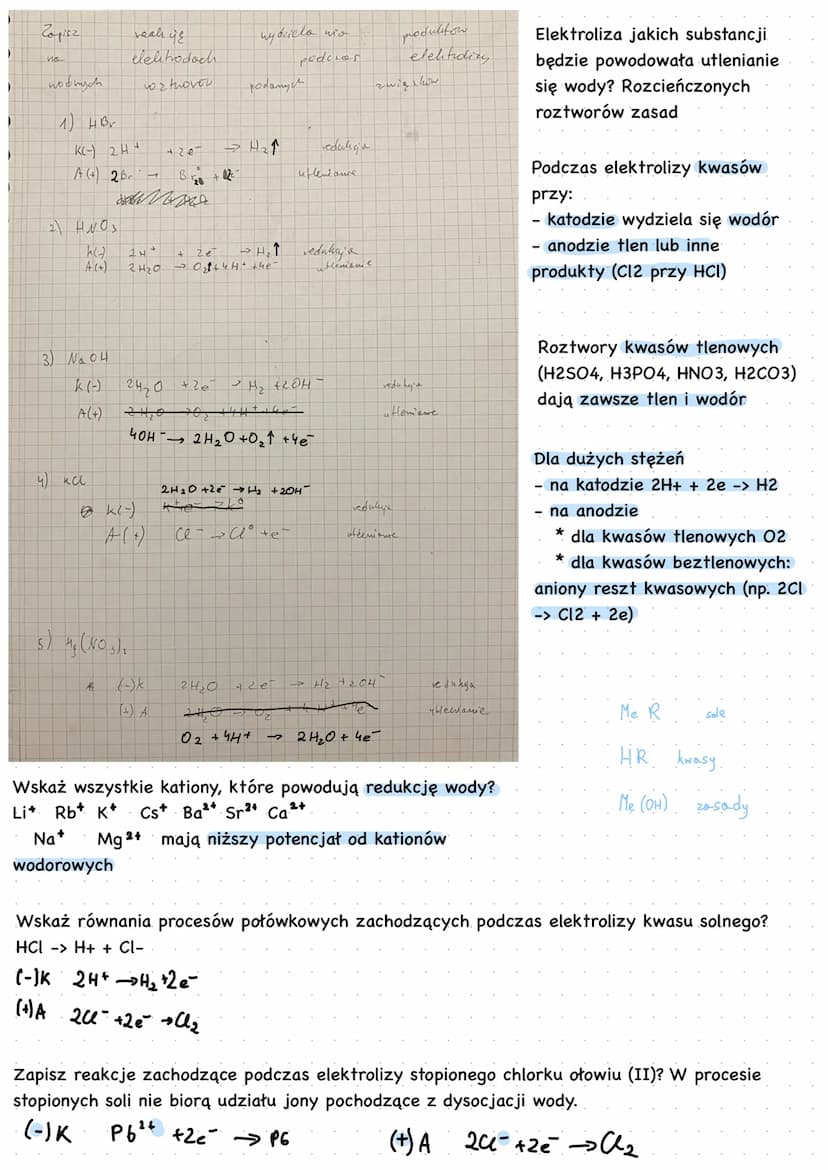 Zapisz reakcję wydzielania produktów
na elektrodach podczas elektrolizy
wodnych roztworów podanych związków
1) HBr
K(-) 2H+ +2e- → H2↑ redukcja
A(+) 2Br- → Br2 + 2e- utlenianie
2) HNO3
K(-) 2H+ + 2e- → H2↑ redukcja
A(+) 2H2O → O2↑+4H+ +4e- utlenianie
3) NaOH
K(-) 2H2O +2e- → H2 +2OH- redukcja
A(+) 2H2O → O2 +4H+ +4e- utlenianie
4OH- → 2H2O +O2↑ +4e-
4) KCl
2H2O +2e- → H2 +2OH-
K(-) K+ +e- → K0 redukcja
A(+) Cl- → Cl0 +e- utlenianie
5) Mg(NO3)2
(-)K 2H2O +2e- → H2 +2OH- redukcja
(+)A 2H2O → O2 + 4H+ +4e- utlenianie
O2 +4H+ → 2H2O + 4e-
Elektroliza jakich substancji
będzie powodowała utlenianie
się wody? Rozcieńczonych
roztworów zasad
Podczas elektrolizy kwasów
przy:
- katodzie wydziela się wodór
- anodzie tlen lub inne
produkty (Cl2 przy HCl)
Roztwory kwasów tlenowych
(H2SO4, H3PO4, HNO3, H2CO3)
dają zawsze tlen i wodór
Dla dużych stężeń
- na katodzie 2H+ + 2e -> H2
- na anodzie
* dla kwasów tlenowych O2
* dla kwasów beztlenowych:
aniony reszt kwasowych (np. 2Cl
-> Cl2 + 2e)
Me R sole
HR kwasy
Me (OH) zasady
Wskaż wszystkie kationy, które powodują redukcję wody?
Li+ Rb+ K+ Cs+ Ba2+ Sr2+ Ca2+
Na+ Mg2+ mają niższy potencjał od kationów
wodorowych
Wskaż równania procesów połówkowych zachodzących podczas elektrolizy kwasu solnego?
HCl -> H+ + Cl-
(-)K 2H+ → H2 +2e-
(+)A 2Cl- +2e- → Cl2
Zapisz reakcje zachodzące podczas elektrolizy stopionego chlorku ołowiu (II)? W procesie
stopionych soli nie biorą udziału jony pochodzące z dysocjacji wody.
(-)K Pb2+ +2e- → Pb (+)A 2Cl- +2e- → Cl2